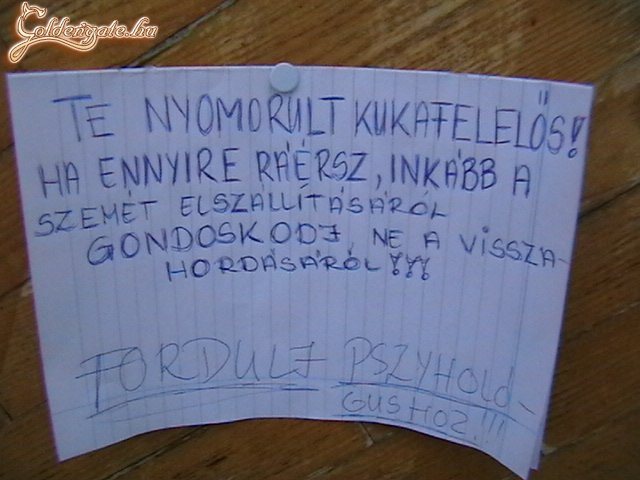 Goldengate.hu
TE NYOMORULT KUKAFELELŐS!
HA ENNYIRE RÁÉRSZ, INKÁBB A
SZEMÉT ELSZÁLLÍTÁSÁRÓL
GONDOSKODJ, NE A VISSZA-
HORDÁSÁRÓL!!!
FORDULJ PSZYHOLO-
GUSHOZ!!!